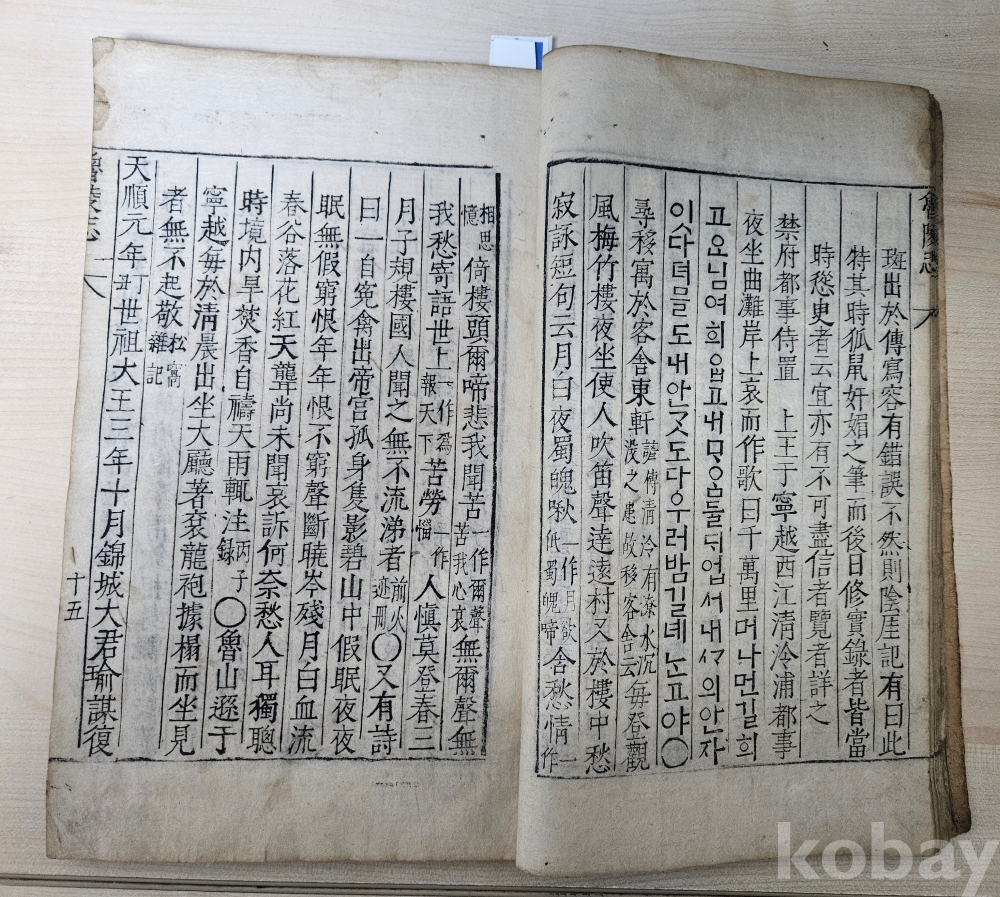 魯陵志
班出於傳寫容有錯誤不然則陰厓記有曰此
特其時狐鼠奸媚之筆而後日修實錄者皆當
時慫臾者云宜亦有不可盡信者覽者詳之
禁府都事侍置 上王于寧越西江清泠浦都事
夜坐曲灘岸上哀而作歌曰千萬里머나먼길희
고오님여희읍고내ᄆᆞᄋᆞᆷ둘ᄃᆡ업서내ᄉᆞ의안자
이시다뎌믈도내안ᄀᆞᆺ도다우러밤길녜ᄂᆞᆫ고야○
尋移寓於客舍東軒諺傳清泠有潦水沉沒之患故移客舍云每登觀
風梅竹樓夜坐使人吹笛聲達遠村又於樓中愁
寂詠短句云月白夜蜀魄啾一作月欲低蜀魄啼含愁情一作
相思憶倚樓頭爾啼悲我聞苦一作爾聲苦我心哀無爾聲無
我愁寄語世上一作爲報天下苦勞一作惱人愼莫登春三
月子規樓國人聞之無不流涕者前火迹冊○又有詩
曰一自冤禽出帝宮孤身隻影碧山中假眠夜夜
眠無假窮恨年年恨不窮聲斷曉岑殘月白血流
春谷落花紅天聾尚未聞哀訴何奈愁人耳獨聰
時境内旱焚香自禱天雨輒注丙子錄○魯山遜于
寧越每於清晨出坐大廳著袞龍袍據榻而坐見
者無不起敬松窩雜記
天順元年丁丑世祖大王三年十月錦城大君瑜謀復
魯陵志 一
十五
kobay